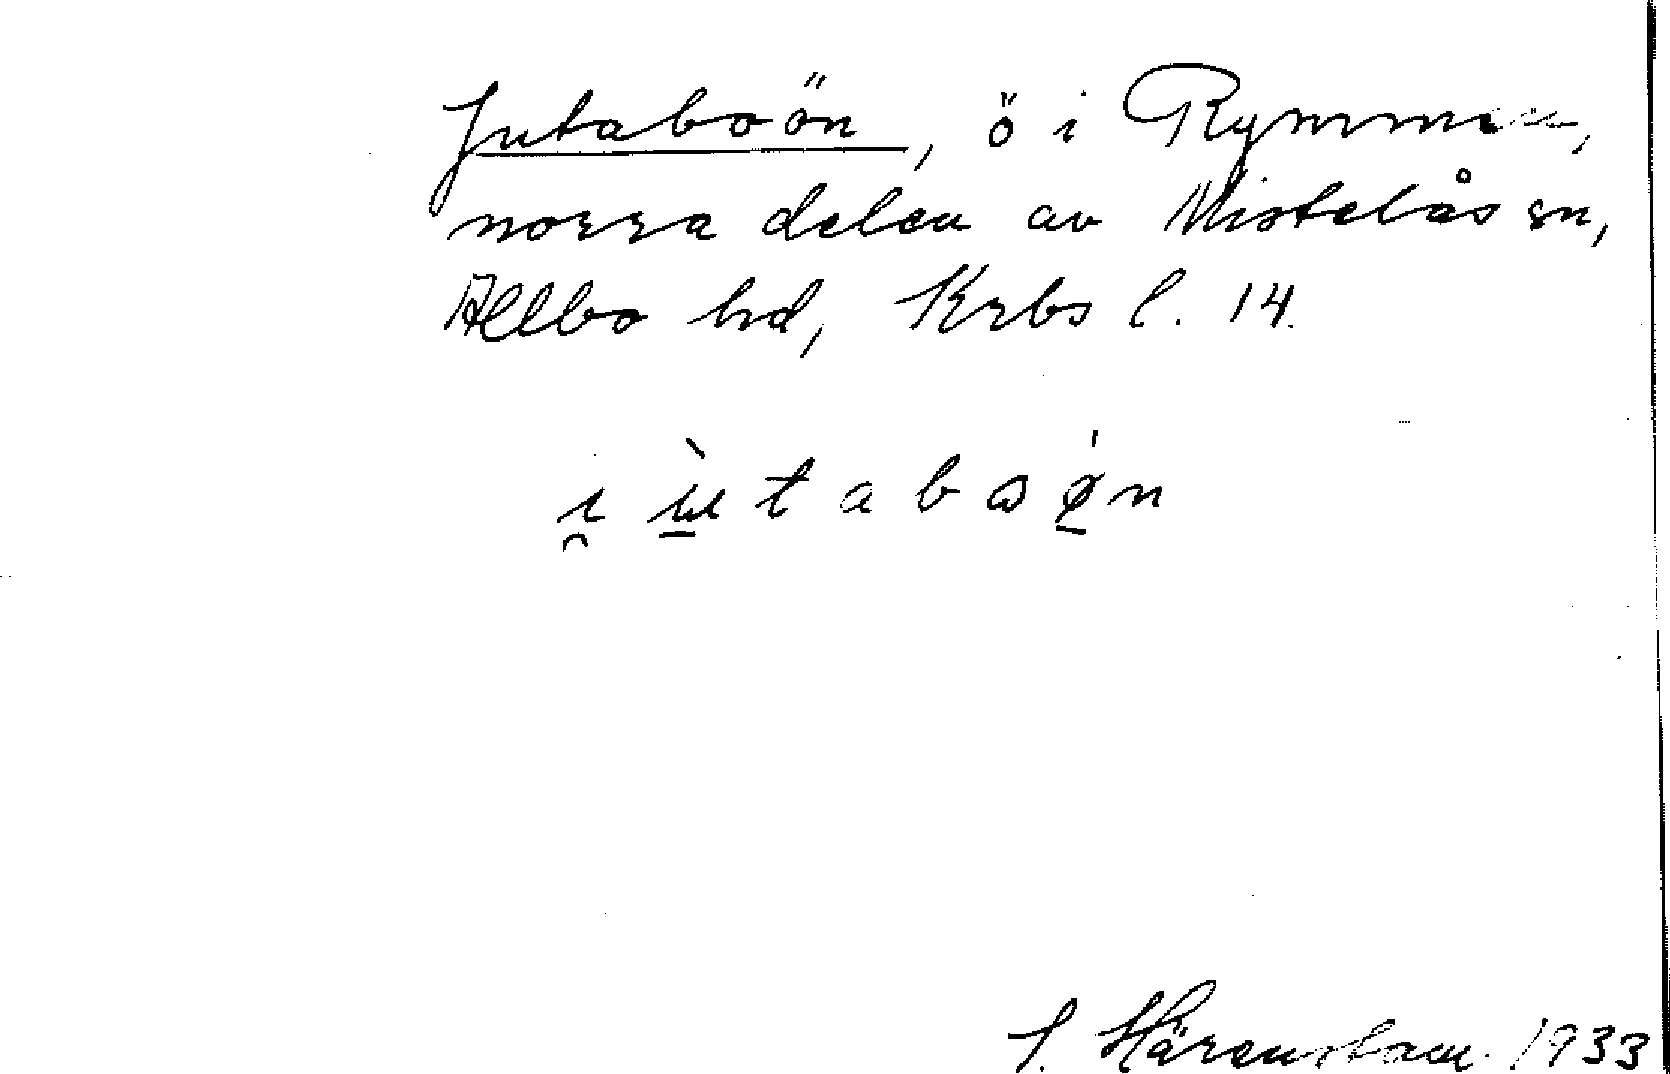 Jutaboön, ö i Rymmen,
norra delen av Mistelås sn,
Allbo hd, Krbs l. 14.
S. Härenstam 1933